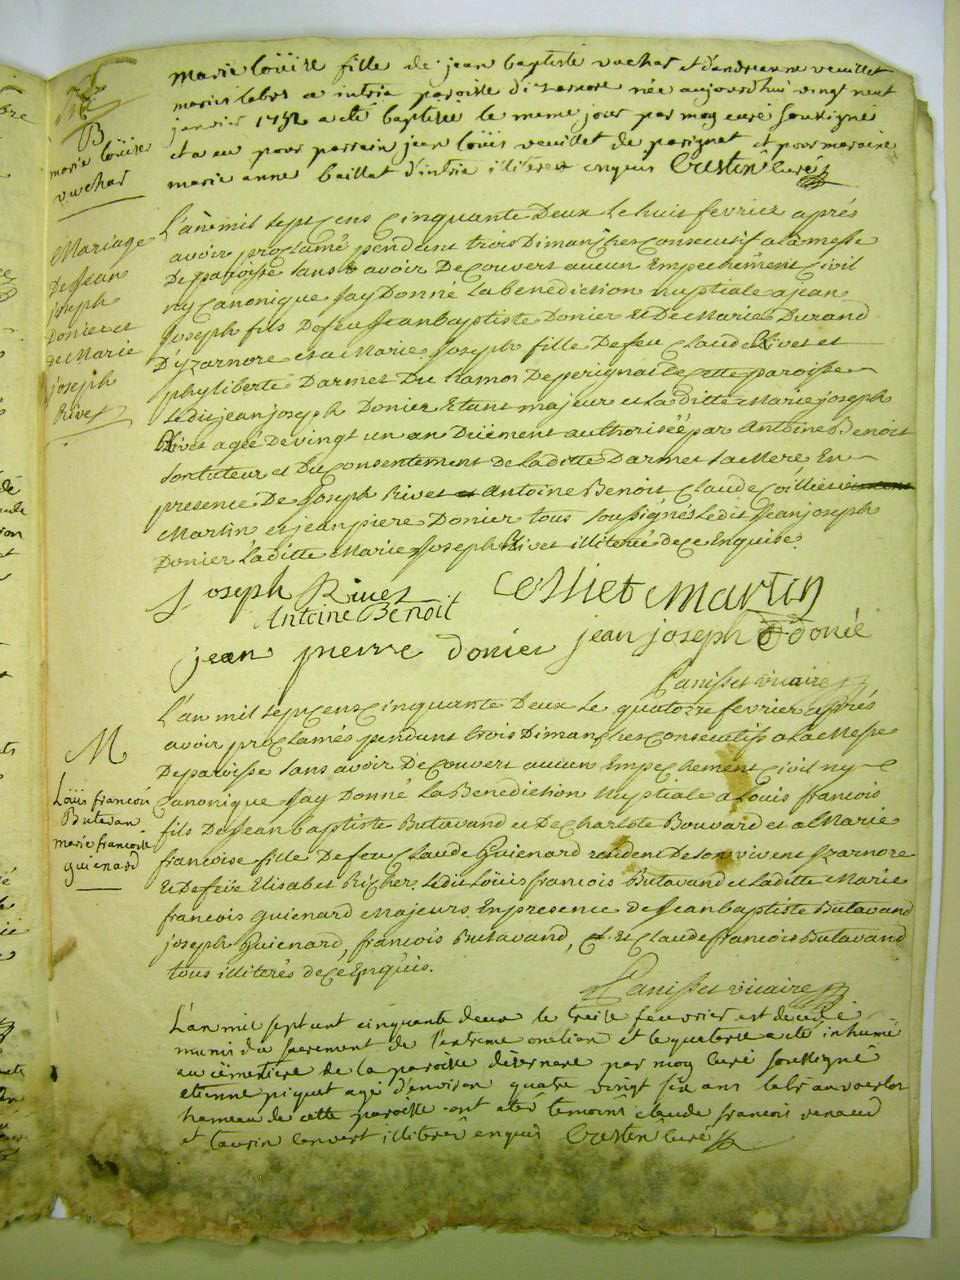 marie loüise fille de jean baptiste vuchar et d'andreanne veuillet
mariés labrs a intria paroisse d'izarnore née aujourdhui vingt neuf
janvier 1752 a été baptisée le meme jour par moy curé soussigné
et a eu pour parrain jean loüis veuillet de perignat et pour maraine
marie anne baillat d'intria illiterés enquis Crestin curé
B
marie loüise
vuchar
L'an mil sept cens cinquante Deux le huit fevrier aprés
avoir proclamé pendant trois Dimanches Consecutif a la messe
De paroisse sans avoir Decouvert aucun Empechement Civil
ny Canonique J'ay Donné la benediction nuptiale a jean
Joseph fils Defeu Jean baptiste Donier Et De Marie Durand
D'yzarnore et a Marie Joseph fille Defeu Claude Rivet et
phyliberte Darmet Du hamos De perignat De cette paroisse
Ledit jean joseph Donier Etant majeur et Laditte Marie joseph
Rivet agée De vingt un an Düement authorisée par Antoine Benoit
son tuteur et Du Consentement De laditte Darmet sa Mere En
presence De Joseph Rivet Antoine Benoit Claude Coilliet
Martin et jean piere Donier tous soussignés Ledit Jean joseph
Donier Laditte Marie Joseph Rivet illiteré de ce Enquise.
Mariage
De Jean
joseph
Donier et
de Marie
joseph
Rivet
Joseph Rivet Collliet Martin
Antoine Benoit
jean pierre donier jean joseph donié
Canisset vicaire
L'an mil sept cens cinquante Deux Le quatorze fevrier aprés
avoir proclamés pendant trois Dimanches Consecutifs a la Messe
De paroisse sans avoir Decouvert aucun Empechement Civil ny
Canonique J'ay Donné La Benediction Nuptiale a Louis francois
fils De Jean baptiste Butavand et De Charlote Bouvard et a Marie
francoise fille Defeu Claude Guienard resident De son vivent Izarnore
Et Defeüe Elisabet Richer. Ledit Loüis francois Butavand et Laditte Marie
francois guienard Majeurs En presence de Jean baptiste Butavand
joseph Guienard, francois Butavand, Et Claude francois Butavand
tous illiterés de ce Enquis.
M
Loüis francois
Butavan
marie francoise
guienard
Canisset vicaire
L'an mil sept cent cinquante deux le treize feuvrier est decédé
munis du sacrement de l'extreme onction et le quatorze a été inhumé
au cemetiere de la paroisse d'esernore par moy curé soussigné
etienne piquet agé d'environ quatre vingt six ans labr au
hameau de cette paroisse ont etés temoins claude francois renaud
et illiterés enquis Crestin curé